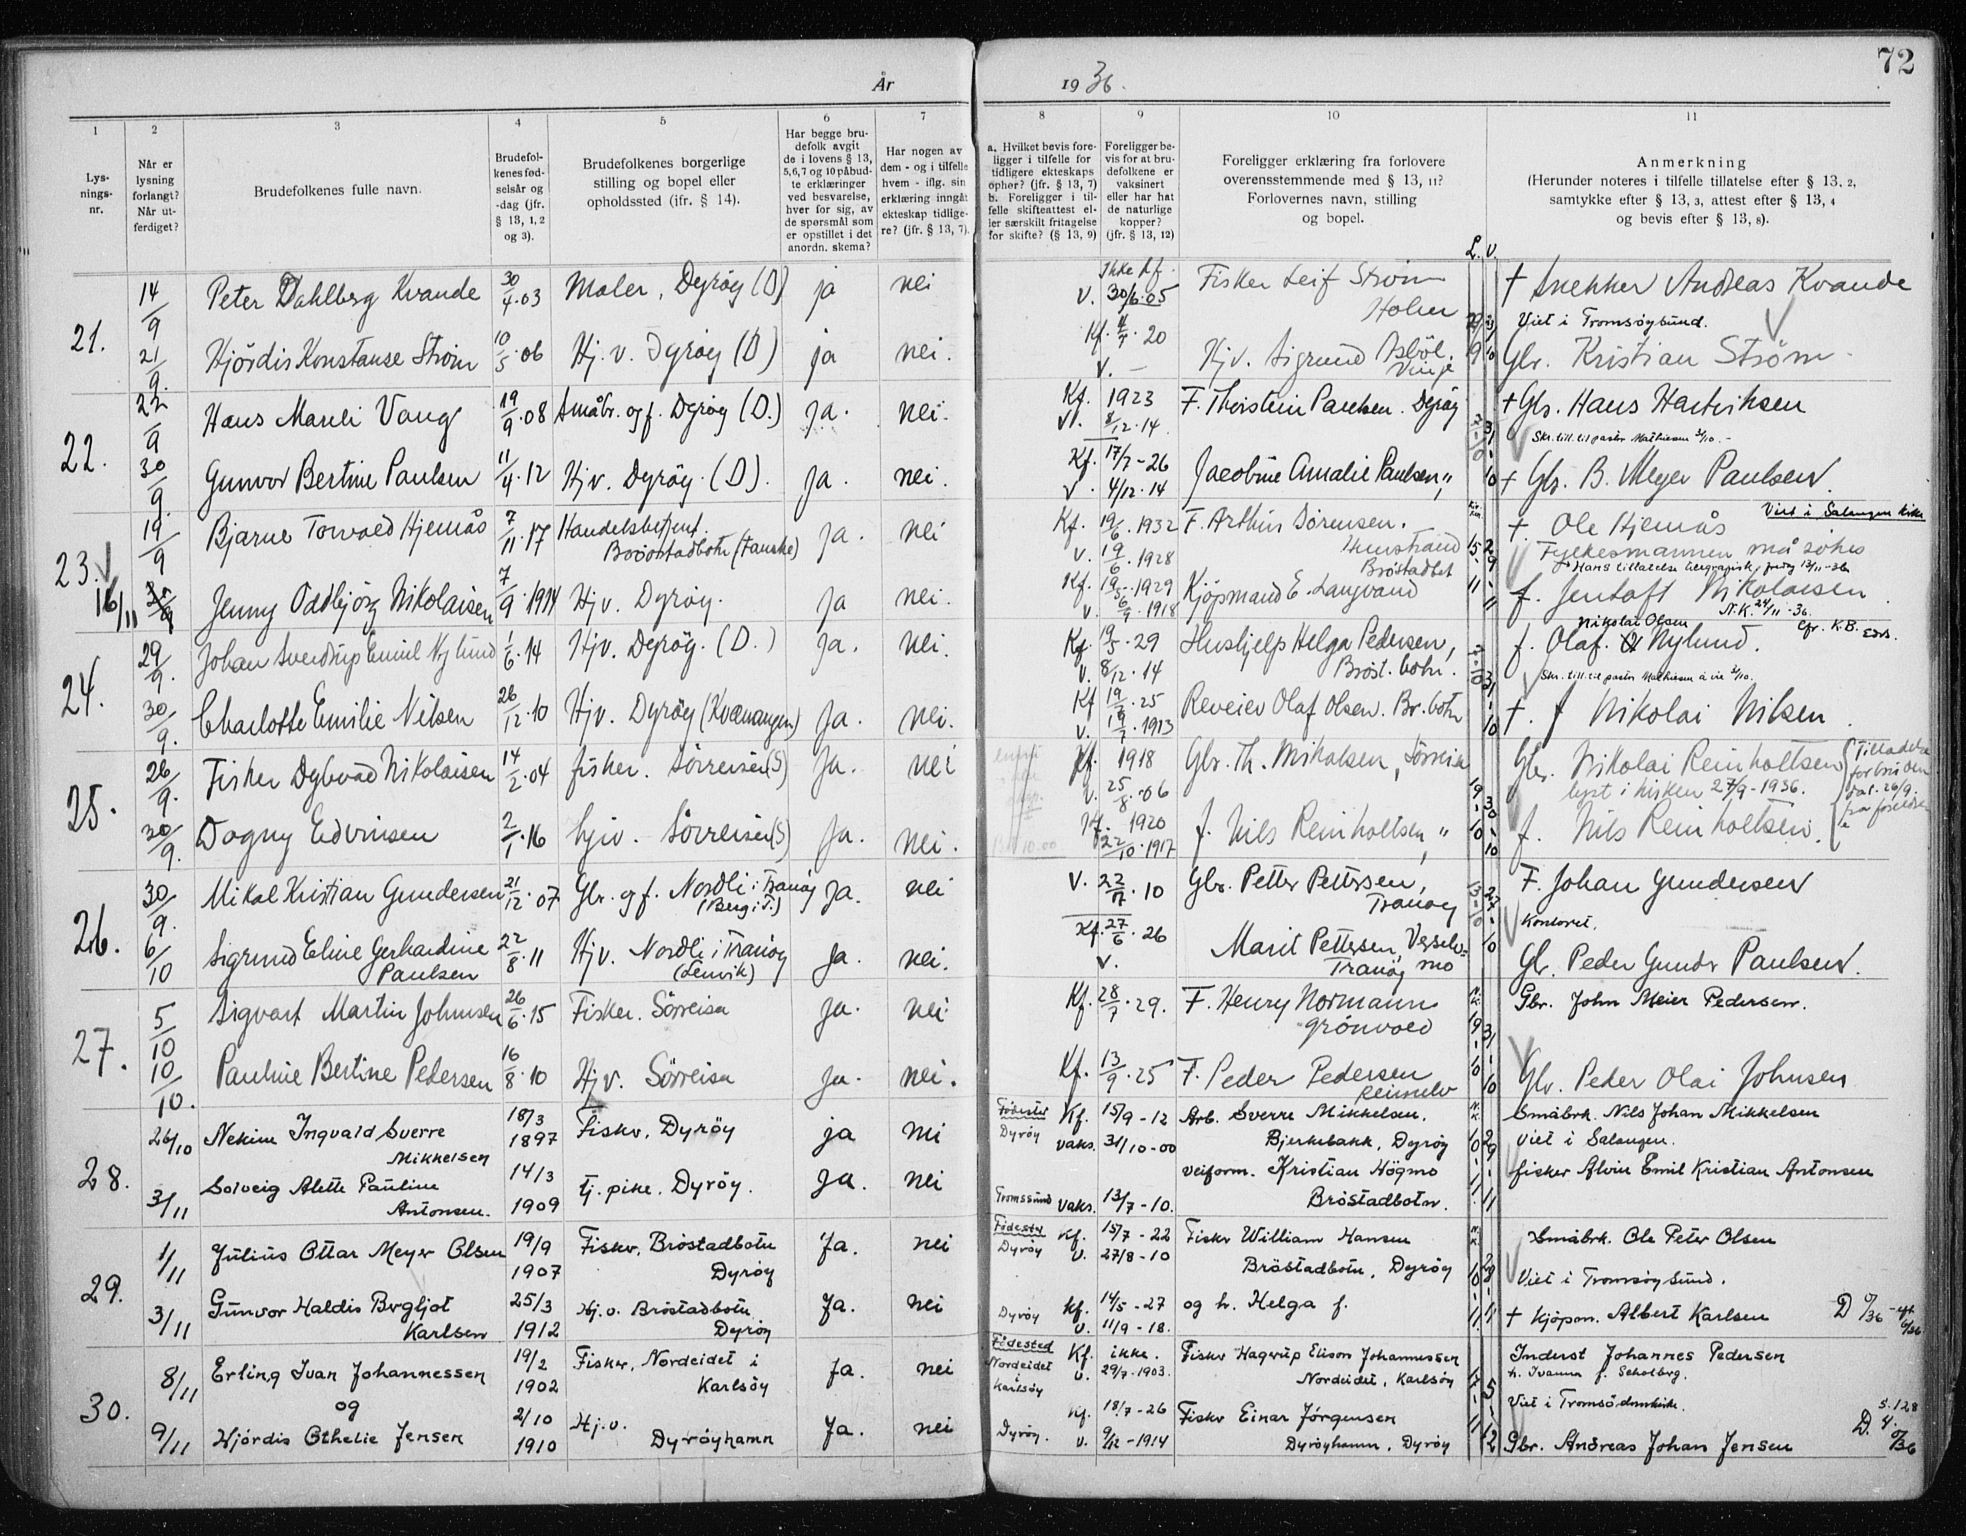 72
År 1936.
1 2 3 4 5 6 7 8 9 10 11
Lys-
nings-
nr.
Når er
lysning
forlangt?
Når ut-
ferdiget?
Brudefolkenes fulle navn.
Brudefol-
kenes fød-
selsår og
-dag (jfr.
§ 13, 1, 2
og 3).
Brudefolkenes borgerlige
stilling og bopel eller
opholdssted (ifr. § 14).
Har begge bru-
defolk avgit
de i lovens § 13,
5, 6, 7 og 10 påbud-
te erklæringer
ved besvarelse,
hver for sig, av
de spørsmål som
er opstillet i det
anordn. skema?
Har nogen av
dem - og i tilfelle
hvem - iflg. sin
erklæring inngåt
ekteskap tidlige-
re? (jfr. § 13, 7).
a. Hvilket bevis fore-
ligger i tilfelle for
tidligere ekteskaps
ophør? (jfr. § 13, 7)
b. Foreligger i til-
felle skifteattest el-
ler særskilt fritagelse
for skifte? (§ 13, 9)
Foreligger be-
vis for at bru-
defolkene er
vaksinert
eller har hat
de naturlige
kopper?
(jfr. § 13, 12)
Foreligger erklæring fra forlovere
overensstemmende med § 13, 11?
Forlovernes navn, stilling
og bopel.
Anmerkning
(Herunder noteres i tilfelle tillatelse efter § 13, 2,
samtykke efter § 13, 3, attest efter § 13, 4
og bevis efter § 13, 8).
L. V.
21.
14/9 Peter Dahlberg Kvande 30/4.03 Maler, Dyrøy (D) ja nei Ikke kf. V. 30/6.05 Fisker Leif Strøm Holm † Snekker Andreas Kvande
Viet i Tromsøysund.
21/9. Hjördis Konstanse Strøm 10/5.06 Hj. v. Dyrøy (D) ja nei. Kf. 4/7.20 V. — Hjv. Sigrund Asbøl. Vinje Gbr. Kristian Strøm
22.
22/9 Hans Mareli Vang 19/9.08 Småbr. og f. Dyrøy (D.) ja. nei. Kf. 1923 V. 8/12.14. F. Thorstein Paulsen. Dyrøy † Gbr. Hans Hartviksen
Skr. till. til pastor Mathiesen 2/10.
30/9. Gunvor Bertine Paulsen 11/4.12 Hjv. Dyrøy. (D). ja. nei. Kf. 17/7-26 V. 4/12.14 Jacobine Amalie Paulsen „ † Gbr. B. Meyer Paulsen
23.
16/11
19/9 Bjarne Torvald Hjemås 7/11.17 Handelsbetjent. Brøstadbotn (Fauske) ja. nei Kf. 19/6 1932 V. 19/6.1928 F. Arthur Sørensen. Brøstadbot † Ole Hjemås
Viet i Salangen kirke
Fylkesmannen må søkes
Hans tillatelse telegrafisk fredag 13/11-36
Jenny Oddbjørg Nikolaisen 7/9.1914 Hjv. Dyrøy. ja nei. Kf. 19/5.1929 V. 6/9.1918 Kjøpmand E. Langvand f. Jentoft Nikolaisen
N.K. 24/11-36.
24.
29/9. Johan Sverdrup Emil Nylund 1/6.14 Hjv. Dyrøy. (D.) ja. nei. Kf. 19/5.29 V. 8/12.14 Hushjelp Helga Pedersen, Brøst. botn. Nikolai Olsen f. Olaf. Nylund. cfr. K.B.
Skr. till. til pastor Mathiesen å vie 2/10.
30/9. Charlotte Emilie Nilsen 26/12.10 Hjv. Dyrøy (Kvænangen) ja. nei. Kf 19/7.25 V. 19/7.1913 Reveier Olaf Olsen. Br. botn †. f Nikolai Nilsen
25.
26/9. Fisker Dybvad Nikolaisen 14/2.04 fisker. Sørreisen (S) Ja. nei Kf. 1918 V. 25/8.06 Gbr. Th. Mikalsen, Sørreisa Gbr. Nikolai Reinholtsen
lyst i kirken 27/9-1936.
Tilladelse for bruden dat. 26/9. fra foreldre
30/9. Dagny Edvinsen 2/1.16 hjv. Sørreisen (S) Ja. nei. Kf. 1920 V. 22/10.1917 f. Nils Reinholtsen „ f. Nils Reinholtsen.
26.
30/9. Mikal Kristian Gundersen 21/12.07 Gbr. og f. Nordli i Tranøy (Berg i T.) ja. nei V. 22/7.10 Gbr. Petter Pettersen, Tranøy F. Johan Gundersen
Kontoret.
6/10 Sigrund Eline Gerhardine Paulsen 22/8.11 Hjv. Nordli i Tranøy (Lenvik) ja. nei. Kf. 27/6.26 V. Marit Pettersen, Vesselv- mo Tranøy Gbr. Peder Gundr Paulsen.
27.
5/10 Sigvart Martin Johnsen 26/6.15 Fisker. Sørreisa ja. nei Kf. 28/7.29. F. Henry Normann Grønvold Gbr. John Meier Pedersen.
10/10. Pauline Bertine Pedersen 16/8.10 Hjv. Sørreisa ja. nei. Kf. 13/9.25 F. Peder Pedersen Reinelv Gbr. Peder Olai Johnsen
28.
26/10 Nekine Ingvald Sverre Mikkelsen 18/3 1897 Fisker, Dyrøy ja nei Fødested Dyrøy Kf. 15/9-12 vaks. 31/10-00 Arb. Sverre Mikkelsen. Bjerkebakk, Dyrøy Småbrk. Nils Johan Mikkelsen
Viet i Salangen.
3/11 Solveig Alette Pauline Antonsen. 14/3 1909 Tj. pike. Dyrøy. Ja. nei Tromsøsund vaks. 13/7-10. veiform. Kristian Högmo Bröstadbotn. fisker Alvin Emil Kristian Antonsen
29.
1/11 Julius Ottar Meyer Olsen 19/9 1907 Fisker, Bröstadbotn Dyröy Ja. nei Fødested Dyröy Kf. 15/7-22 V. 27/8-10 Fisker William Hansen Bröstadbotn, Dyröy Småbrk. Ole Peter Olsen
Viet i Tromsøysund.
3/11 Gunvor Haldis Brgljot Karlsen 25/3 1912 Hj.v. Bröstadbotn Dyröy Ja. nei Dyröy Kf. 14/5-27 V. 11/9-18. og h. Helga f. † Kjöpm. Albert Karlsen
30.
8/11 Erling Ivan Johannessen 19/2 1902 Fisker, Nordeidet i Karlsöy Ja. nei Födested Nordeidet i Karlsöy Kf. ikke. V. 29/7-1903. Fisker Hagerup Elison Johannessen Nordeidet, Karlsöy Inderst Johannes Pedersen
h. Ivanna f. Scholberg.
Viet i Tromsö domkirke.
og
9/11 Hjördis Othelie Jensen 2/10 1910 Hj.v. Dyröyhamn Ja. nei Dyröy. Kf. 18/7-26 V. 9/12-1914 Fisker Einar Jörgensen Dyröyhamn, Dyröy Gbr. Andreas Johan Jensen
S. 128